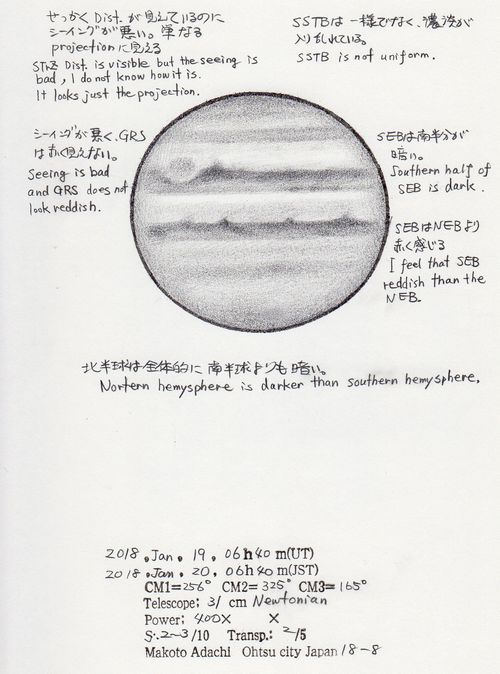 せっかく Dist. が見えているのに
シーイングが悪い。単なる
projection に見える
STrZ Dist. is visible but the seeing is
bad, I do not know how it is.
It looks just the projection.
SSTBは一様でなく、濃淡が
入り乱れている。
SSTB is not uniform.
シーイングが悪く、GRS
は赤く見えない。
Seeing is bad
and GRS does not
look reddish.
SEBは南半分が
暗い。
Southern half of
SEB is dark.
SEBはNEBより
赤く感じる
I feel that SEB
reddish than the
NEB.
北半球は全体的に南半球よりも暗い。
Nortern hemysphere is darker than southern hemysphere.
2018, Jan, 19, 06h40m(UT)
2018, Jan, 20, 06h40m(JST)
CM1=256° CM2=325° CM3=165°
Telescope: 31 cm Newtonian
Power: 400× ×
S:2~3/10 Transp.: 2/5
Makoto Adachi Ohtsu city Japan 18-8